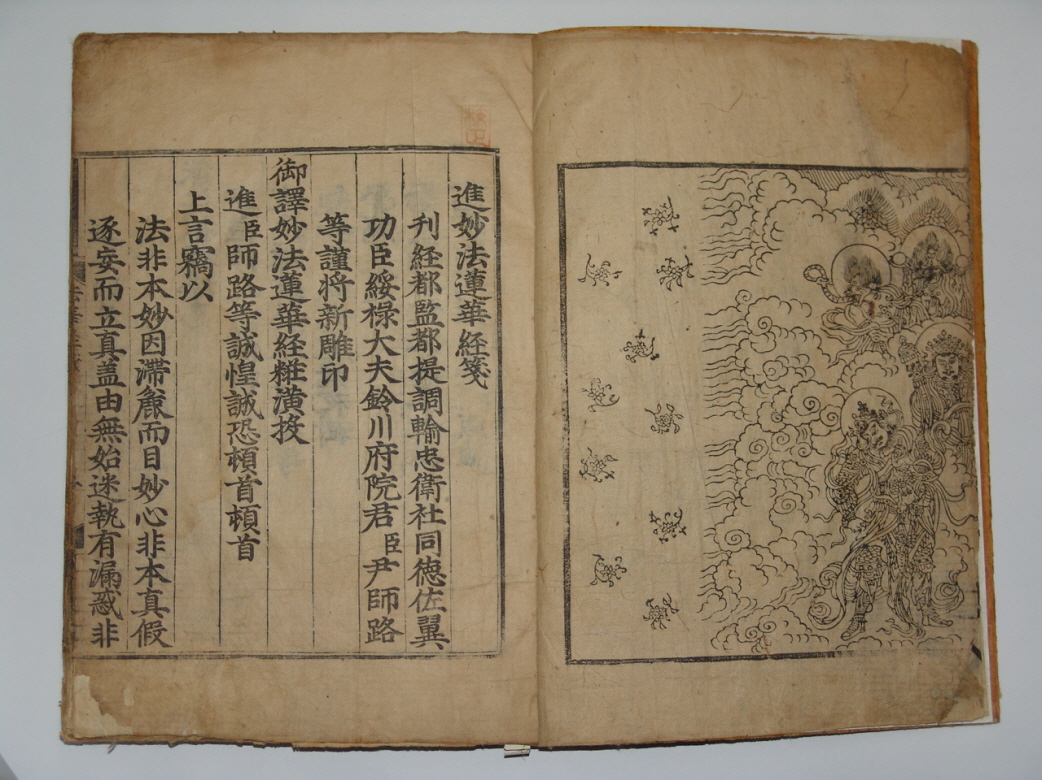 進妙法蓮華経箋
刊経都監都提調輸忠衛社同徳佐翼
功臣綏禄大夫鈴川府院君臣尹師路
等謹将新雕印
御譯妙法蓮華経粧潢投
進臣師路等誠惶誠恐頓首頓首
上言竊以
法非本妙因滯麁而目妙心非本真假
逐妄而立真盖由無始迷執有漏惑非